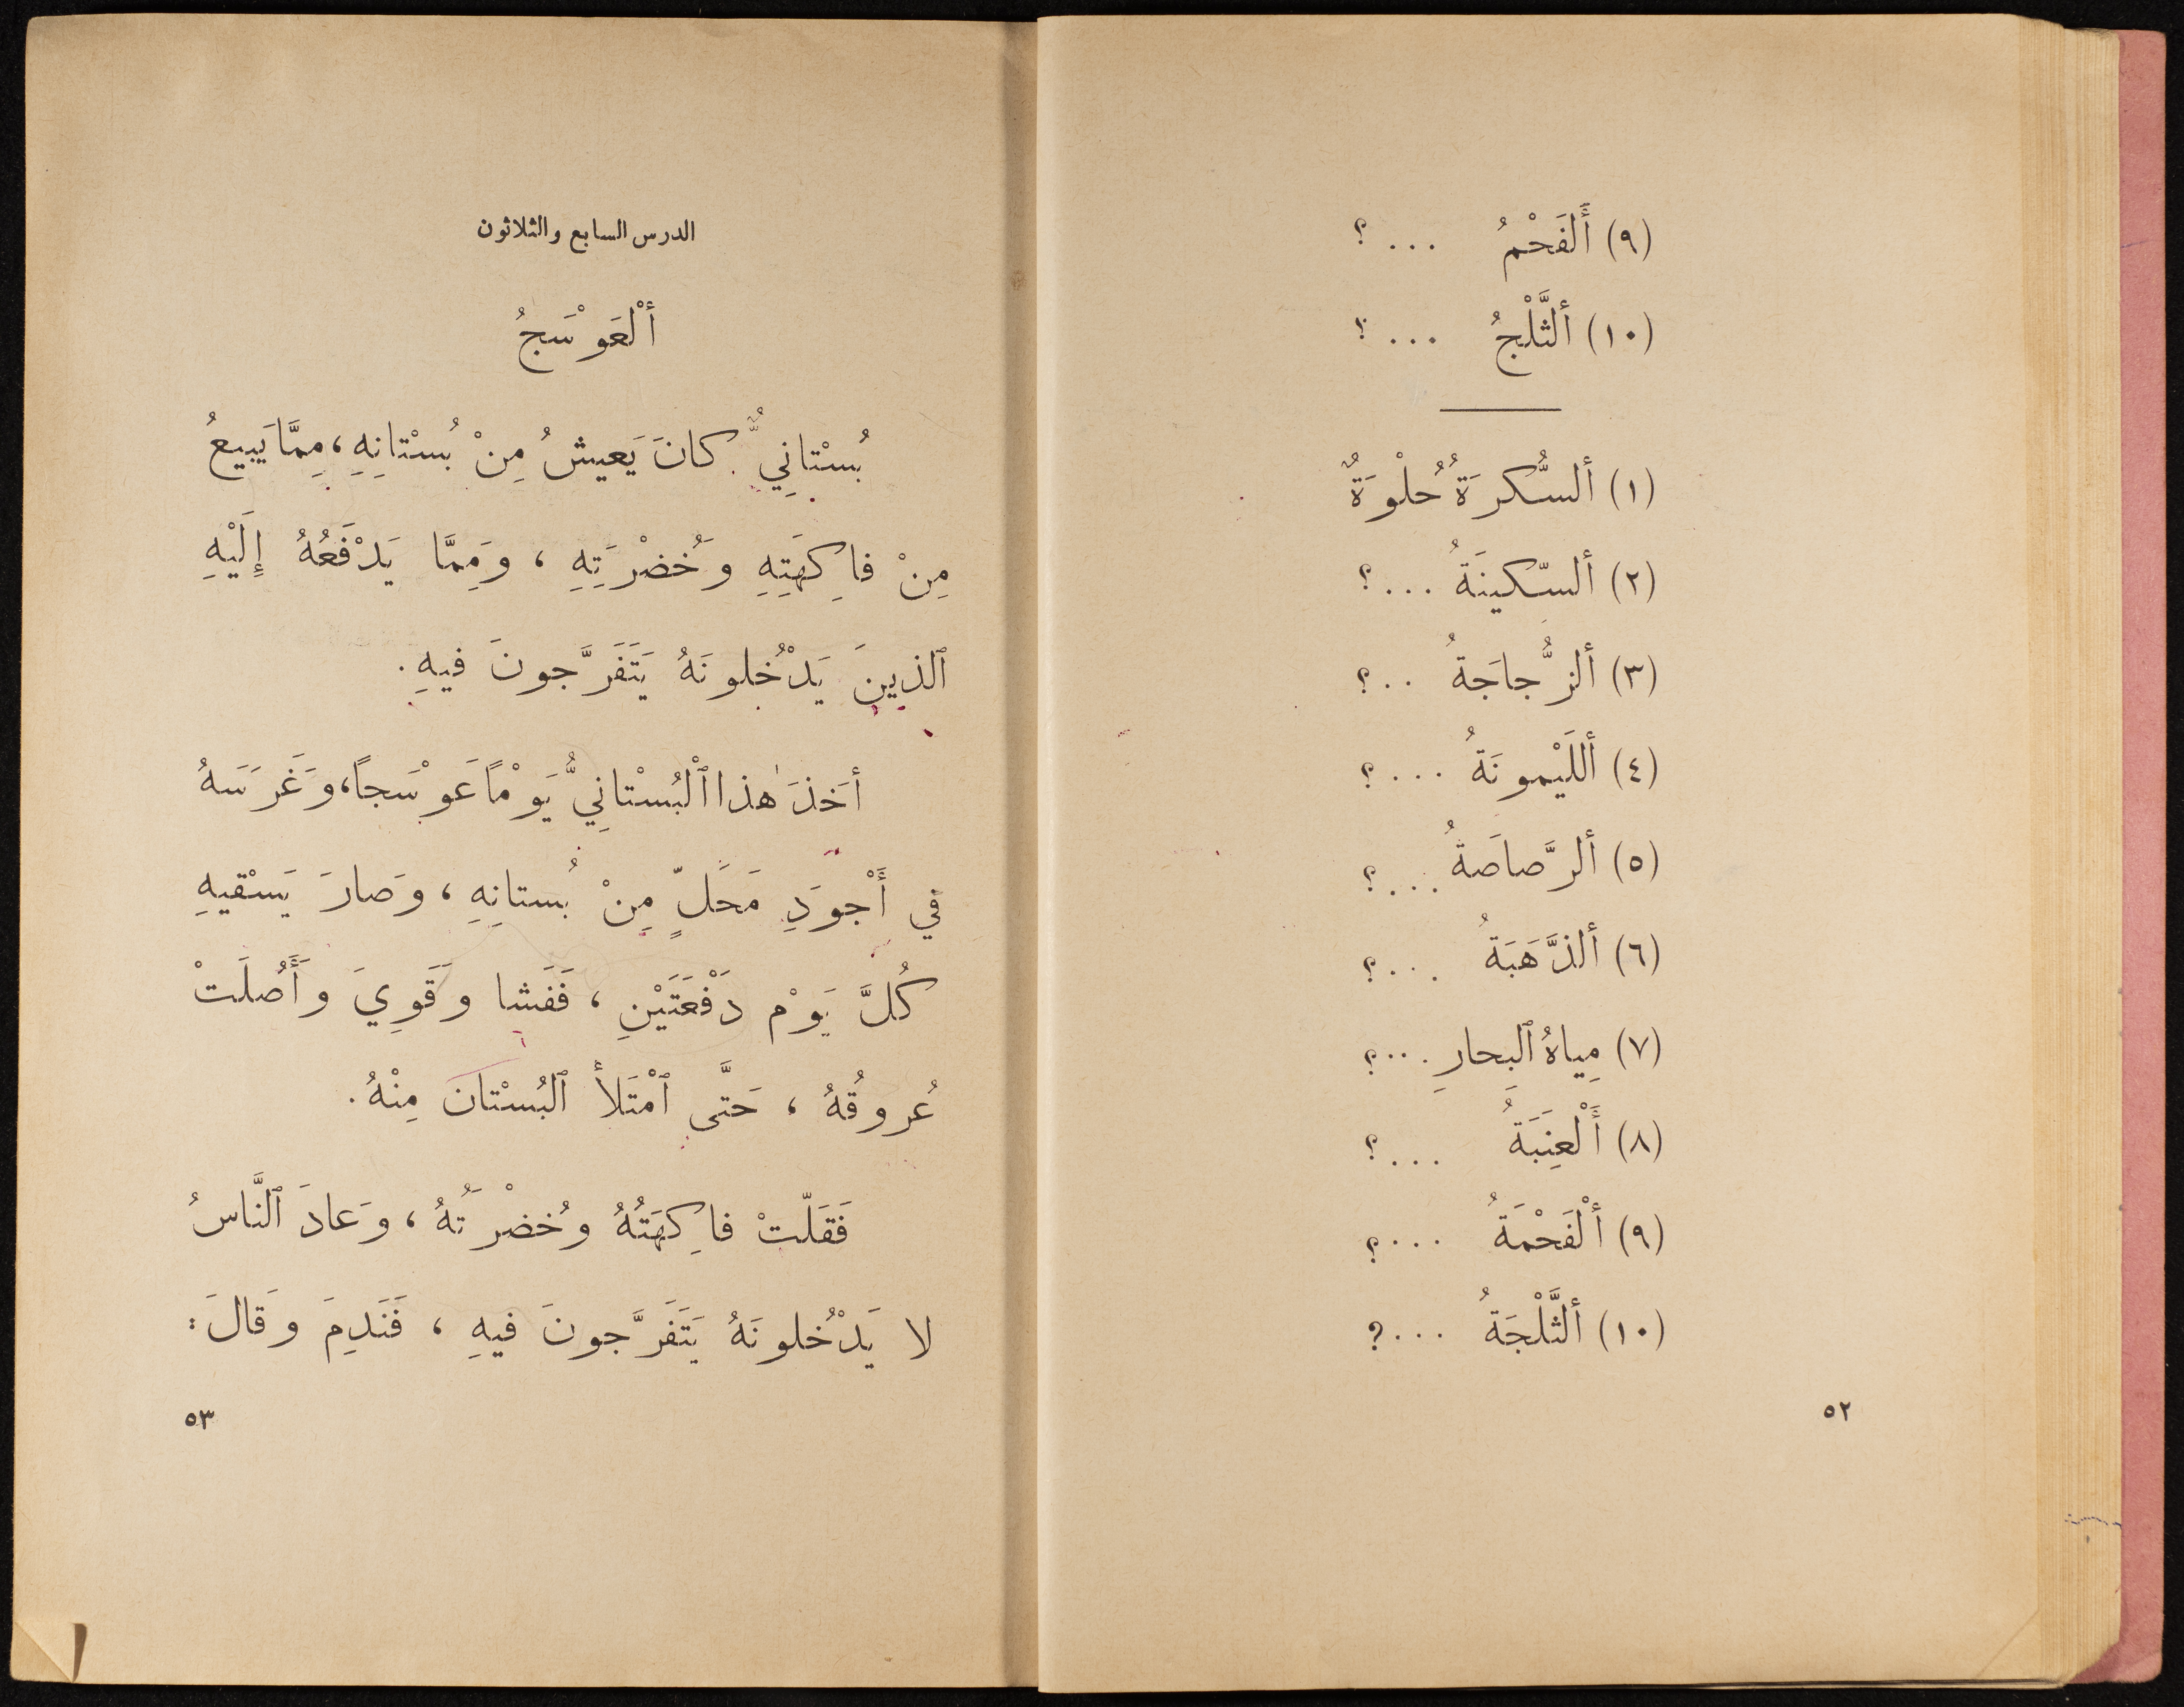 (٩) أَلفَحْمُ ... ؟
(١٠) ألثَّلْجُ ... ؟
(١) ألسُّكرَةُ حُلْوَةٌ
(٢) ألسّكينَةُ ... ؟
(٣) ألزُّجاجَةُ .. ؟
(٤) أللَيْمونَةُ ... ؟
(٥) ألرَّصاصَةُ ... ؟
(٦) ألذَّهَبَةُ ... ؟
(٧) مِياهُ ٱلبِحارِ ... ؟
(٨) أَلْعِنَبَةُ ... ؟
(٩) أَلْفَحْمَةُ ... ؟
(١٠) ألثَّلْجَةُ ... ?
٥٢
الدرس السابع والثلاثون
أَلْعَوْسَجُ
بُسْتانِيٌّ كانَ يَعيشُ مِنْ بُسْتانِهِ، مِمَّا يَبيعُ
مِنْ فاكِهَتِهِ وَخُضْرَتِهِ ، وَمِمَّا يَدْفَعُهُ إِلَيْهِ
ٱلذينَ يَدْخُلونَهُ يَتَفَرَّجونَ فيهِ.
أخَذَ هٰذا ٱلْبُسْتانِيُّ يَوْمًا عَوْسَجاً، وَغَرَسَهُ
في أَجْوَدِ مَحَلٍّ مِنْ بُستانِهِ ، وَصارَ يَسْقيهِ
كُلَّ يَوْم دَفْعَتَيْنِ ، فَفَشا وَقَوِيَ وَأَصُلَتْ
عُروقُهُ ، حَتَّى ٱمْتَلأَ ٱلبُسْتان مِنْهُ.
فَقَلّتْ فاكِهَتُهُ وخُضْرَتُهُ ، وَعادَ ٱلنَّاسُ
لا يَدْخُلونَهُ يَتَفَرَّجونَ فيهِ ، فَنَدِمَ وَقالَ:
٥٣